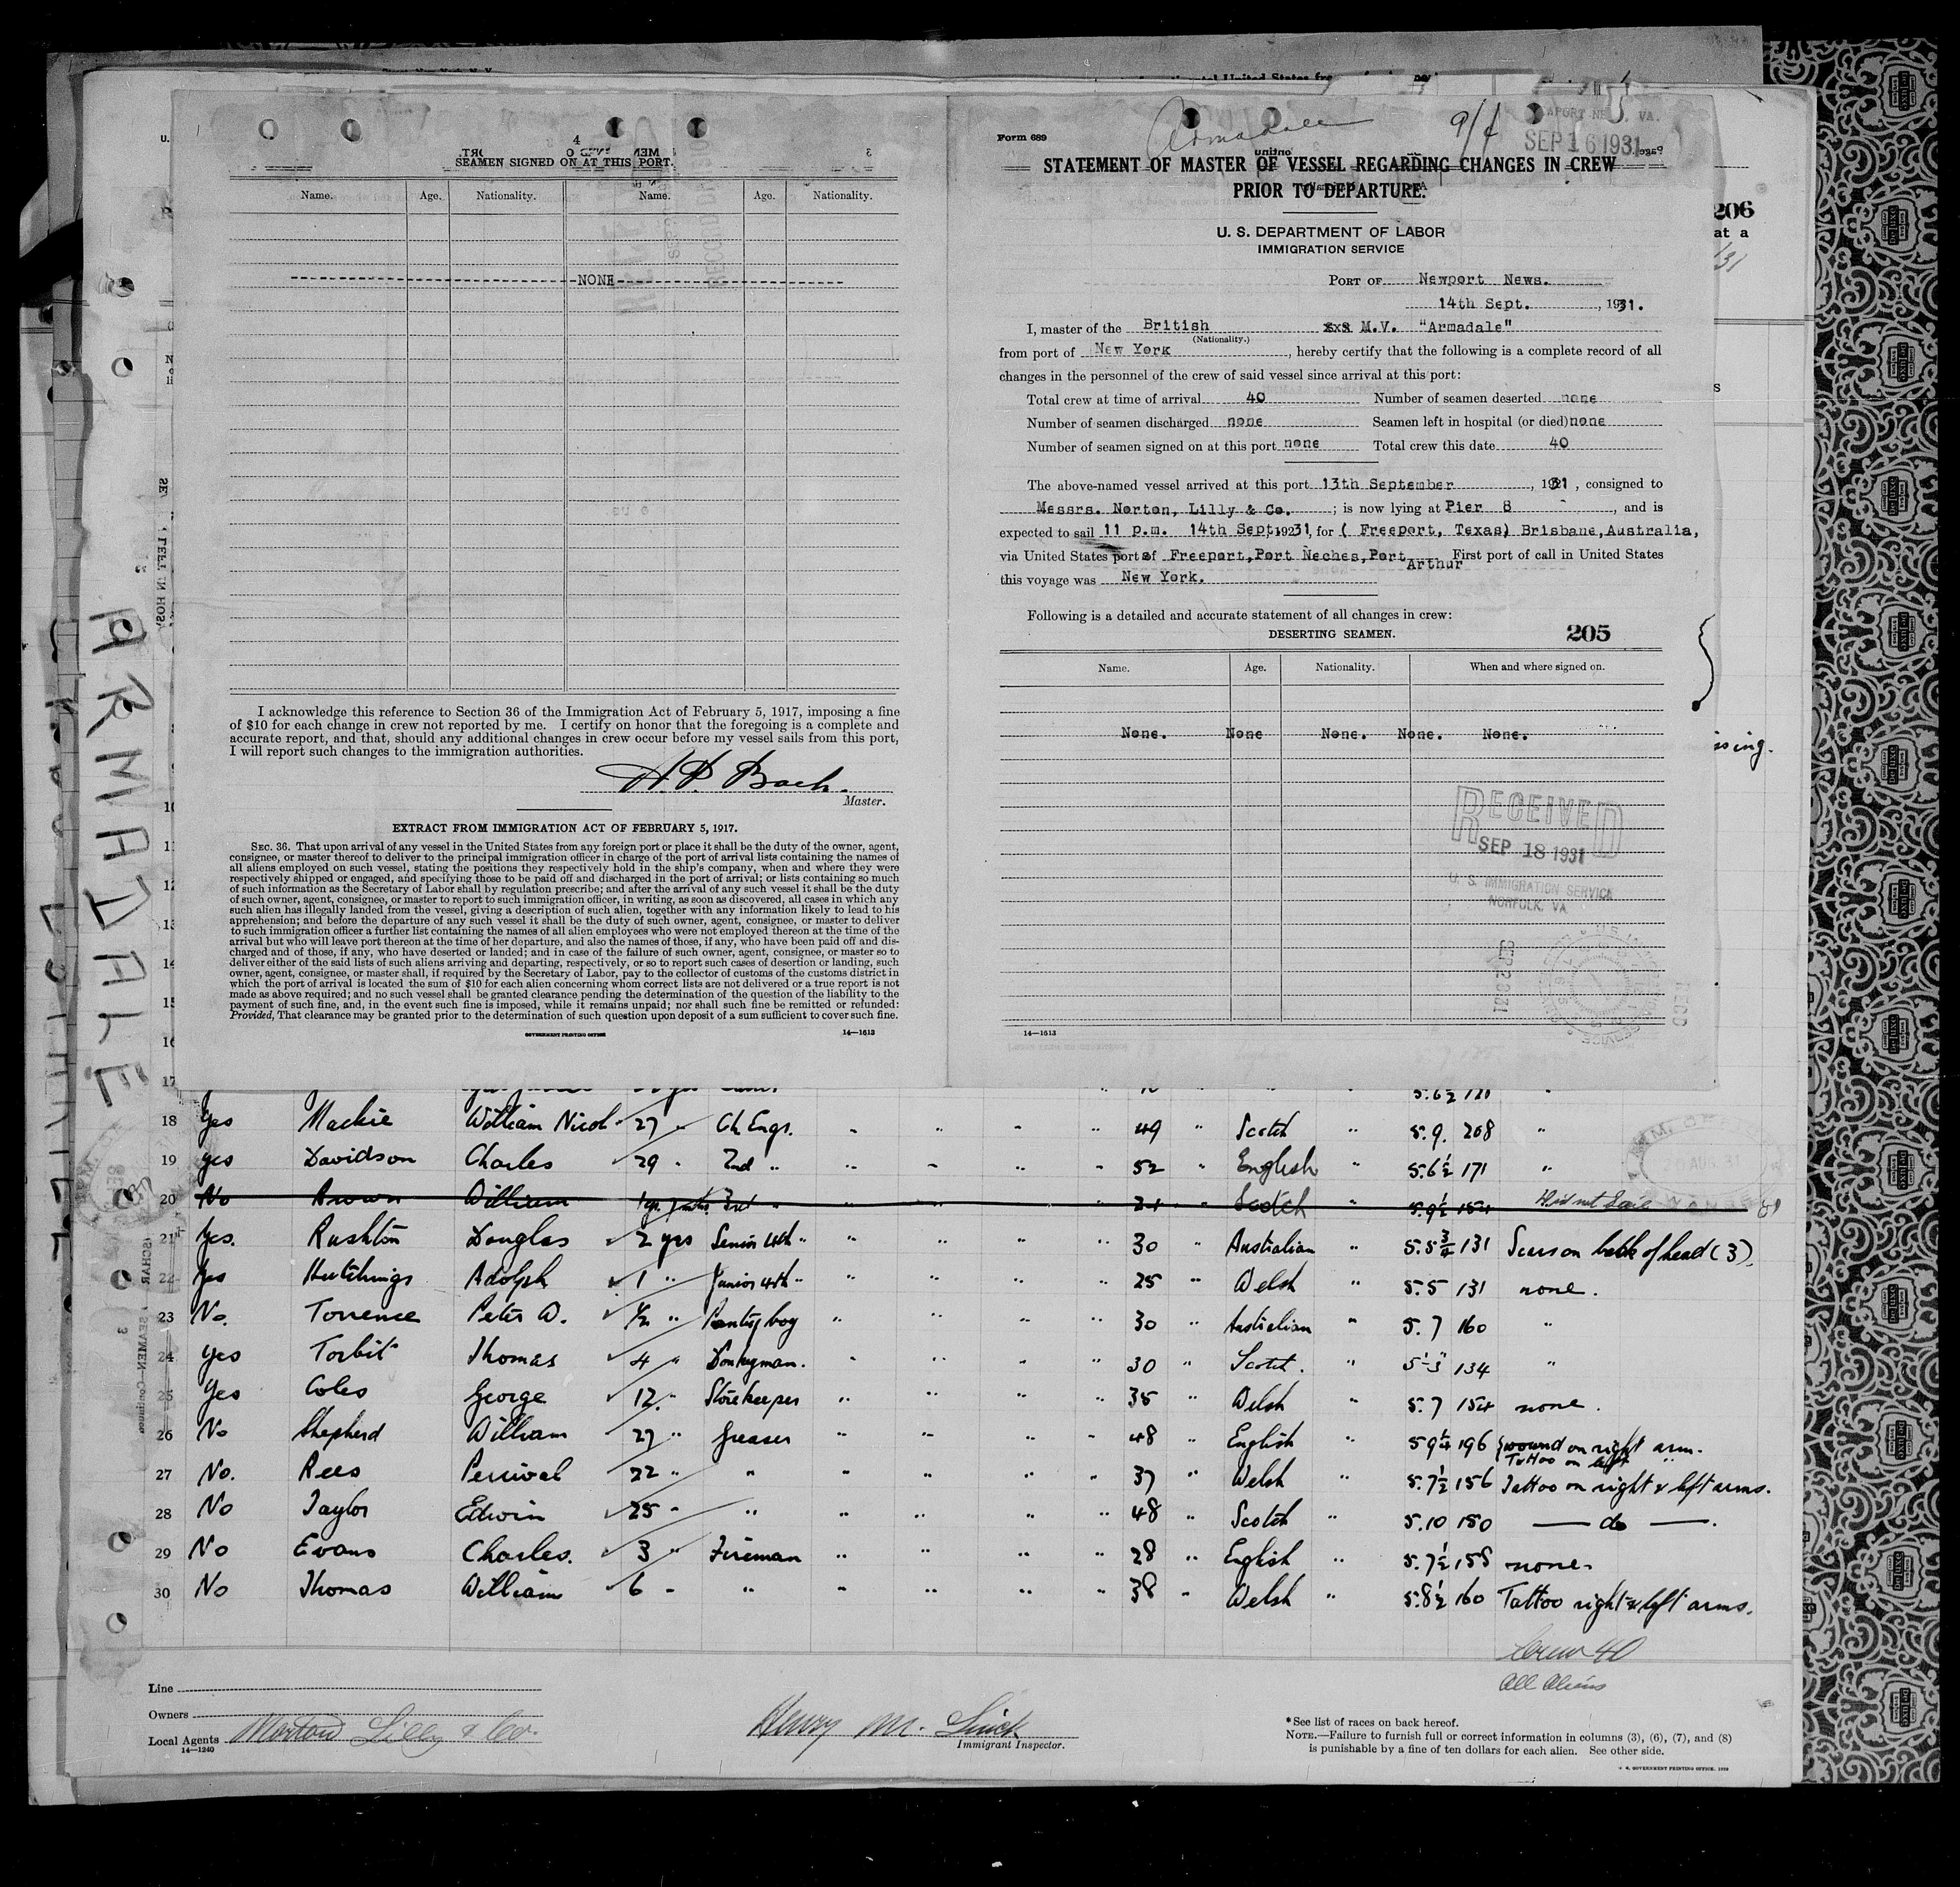 4
SEAMEN SIGNED ON AT THIS PORT.
Name. Age. Nationality. Name. Age. Nationality.
NONE
I acknowledge this reference to Section 36 of the Immigration Act of February 5, 1917, imposing a fine
of $10 for each change in crew not reported by me. I certify on honor that the foregoing is a complete and
accurate report, and that, should any additional changes in crew occur before my vessel sails from this port,
I will report such changes to the immigration authorities.
Master.
EXTRACT FROM IMMIGRATION ACT OF FEBRUARY 5, 1917.
SEC. 36. That upon arrival of any vessel in the United States from any foreign port or place it shall be the duty of the owner, agent,
consignee, or master thereof to deliver to the principal immigration officer in charge of the port of arrival lists containing the names of
all aliens employed on such vessel, stating the positions they respectively hold in the ship's company, when and where they were
respectively shipped or engaged, and specifying those to be paid off and discharged in the port of arrival; or lists containing so much
of such information as the Secretary of Labor shall by regulation prescribe; and after the arrival of any such vessel it shall be the duty
of such owner, agent, consignee, or master to report to such immigration officer, in writing, as soon as discovered, all cases in which any
such alien has illegally landed from the vessel, giving a description of such alien, together with any information likely to lead to his
apprehension; and before the departure of any such vessel it shall be the duty of such owner, agent, consignee, or master to deliver
to such immigration officer a further list containing the names of all alien employees who were not employed thereon at the time of the
arrival but who will leave port thereon at the time of her departure, and also the names of those, if any, who have been paid off and dis-
charged and of those, if any, who have deserted or landed; and in case of the failure of such owner, agent, consignee, or master so to
deliver either of the said lists of such aliens arriving and departing, respectively, or so to report such cases of desertion or landing, such
owner, agent, consignee, or master shall, if required by the Secretary of Labor, pay to the collector of customs of the customs district in
which the port of arrival is located the sum of $10 for each alien concerning whom correct lists are not delivered or a true report is not
made as above required; and no such vessel shall be granted clearance pending the determination of the question of the liability to the
payment of such fine, and, in the event such fine is imposed, while it remains unpaid; nor shall such fine be remitted or refunded:
Provided, That clearance may be granted prior to the determination of such question upon deposit of a sum sufficient to cover such fine.
GOVERNMENT PRINTING OFFICE 14—1613
Form 689 Armadale
SEP 16 1931
STATEMENT OF MASTER OF VESSEL REGARDING CHANGES IN CREW
PRIOR TO DEPARTURE.
U. S. DEPARTMENT OF LABOR
IMMIGRATION SERVICE
PORT OF Newport News.
14th Sept., 1931.
I, master of the British M.V. "Armadale"
(Nationality.)
from port of New York, hereby certify that the following is a complete record of all
changes in the personnel of the crew of said vessel since arrival at this port:
Total crew at time of arrival 40 Number of seamen deserted none
Number of seamen discharged none Seamen left in hospital (or died) none
Number of seamen signed on at this port none Total crew this date 40
The above-named vessel arrived at this port 13th September, 1931, consigned to
Messrs. Norton, Lilly & Co.; is now lying at Pier 8, and is
expected to sail 11 p.m. 14th Sept. 1931, for ( Freeport, Texas) Brisbane, Australia,
via United States ports of Freeport, Port Neches, Port Arthur First port of call in United States
this voyage was New York.
Following is a detailed and accurate statement of all changes in crew:
DESERTING SEAMEN. 205
Name. Age. Nationality. When and where signed on.
None. None None. None. None.
RECEIVED
SEP 18 1931
U. S. IMMIGRATION SERVICE
NORFOLK, VA
14—1613
206
at a
ARMADALE
17
18 Yes Mackie William Nicol 27 " Ch Engr. 49 " Scotch " 5.9. 208 "
19 yes Davidson Charles 29 " 2nd " 52 " English " 5.6½ 171 "
20 No Brown William Scotch " 5.9½ 154 Did not Sail
21 Yes. Rushton Douglas 2 yrs Senior 4th " 30 " Australian " 5.5¾ 131 Scars on back of head (3).
22 Yes Hutchings Adolph 1 " Junior 4th " 25 " Welsh " 5.5 131 none.
23 No. Torrence Peter A. ½ " Pantry boy 30 " Australian " 5.7 160 "
24 Yes Torbit Thomas 4 " Donkeyman. 30 " Scotch. " 5.3 134 "
25 Yes Coles George 12 " Storekeeper 35 " Welsh " 5.7 154 none.
26 No Shepherd William 27 " Greaser 48 " English " 5 9¼ 196 wound on right arm.
Tattoo on left "
27 No. Rees Percival 22 " " 37 " Welsh " 5.7½ 156 Tattoo on right & left arms.
28 No Taylor Edwin 25 " " 48 " Scotch " 5.10 150 — do —.
29 No Evans Charles. 3 " Fireman 28 " English " 5.7½ 158 none.
30 No Thomas William 6 " " 38 " Welsh " 5.8½ 160 Tattoo right & left arms.
Crew 40
All Aliens
Line
Owners
Local Agents Norton Lilly & Co.
14—1240
Henry M.
Immigrant Inspector.
*See list of races on back hereof.
NOTE.—Failure to furnish full or correct information in columns (3), (6), (7), and (8)
is punishable by a fine of ten dollars for each alien. See other side.